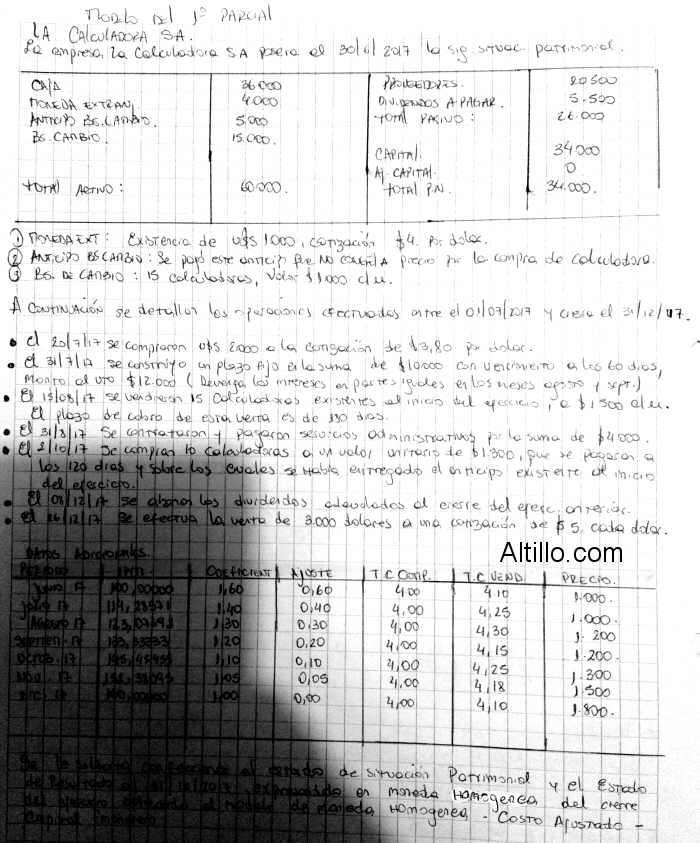 MODELO DEL 1º PARCIAL
LA CALCULADORA S.A.
La empresa La Calculadora SA poseía al 30/6/2017 la sig. situac. patrimonial.
CAJA 36000 PROVEEDORES. 20500
MONEDA EXTRANJ 4.000 DIVIDENDOS A PAGAR. 5.500
ANTICIPO BS. CAMBIO. 5.000 TOTAL PASIVO: 26.000
BS. CAMBIO 15.000.
CAPITAL. 34000
AJ. CAPITAL. 0
TOTAL ACTIVO: 60.000. TOTAL P.N. 34.000.
① MONEDA EXT: Existencia de U$S 1000, cotización $4. por dolar.
② ANTICIPO BS CAMBIO: Se pagó este anticipo que NO CONGELA precio por la compra de calculadora.
③ BS. DE CAMBIO: 15 calculadoras, Valor $1.000 c/u.
A CONTINUACIÓN se detallan las operaciones efectuadas entre el 01/07/2017 y cierre el 31/12/17.
• El 20/7/17 se compraron U$S 2.000 a la cotización de $3,80 por dolar.
• El 31/7/17 se constituyó un plazo fijo en la suma de $10.000 con vencimiento a los 60 dias,
Monto al VTO $12.000 (Devenga los intereses en partes iguales en los meses agosto y sept.)
• El 15/08/17 se vendieron 15 Calculadoras existentes al inicio del ejercicio, a $1500 c/u.
El plazo de cobro de esta venta es de 130 dias.
• El 31/8/17 Se contrataron y pagaron servicios administrativos por la suma de $4000.
• El 2/10/17 Se compran 10 calculadoras a un valor unitario de $1.300, que se pagaran a
los 120 dias y sobre los cuales se había entregado el anticipo existente al inicio
del ejercicio.
• El 03/12/17 se abonan los dividendos adeudados al cierre del ejerc. anterior.
• El 26/12/17 Se efectua la venta de 3.000 dolares a una cotización de $5 cada dolar.
Altillo.com
DATOS ADICIONALES.
PERIODO IPIM COEFICIENT AJUSTE T.C COMP. T.C VEND. PRECIO.
Junio 17 100,00000 1,60 0,60 4,00 4,10 1.000.
Julio 17 114,28571 1,40 0,40 4,00 4,25 1.000.
Agosto 17 123,07692 1,30 0,30 4,00 4,30 1.200
Septiem. 17 133,33333 1,20 0,20 4,00 4,15 1.200.
Octub. 17 145,45455 1,10 0,10 4,00 4,25 1.300
Nov. 17 152,38095 1,05 0,05 4,00 4,18 1.500
Dic. 17 160,00000 1,00 0,00 4,00 4,10 1.800.
Se le solicita confeccionar el estado de situación Patrimonial y el Estado
de Resultado al 31/12/2017 expresados en moneda HOMOGENEA del cierre
del ejercicio utilizando el modelo de Moneda HOMOGENEA - COSTO AJUSTADO -
Capital